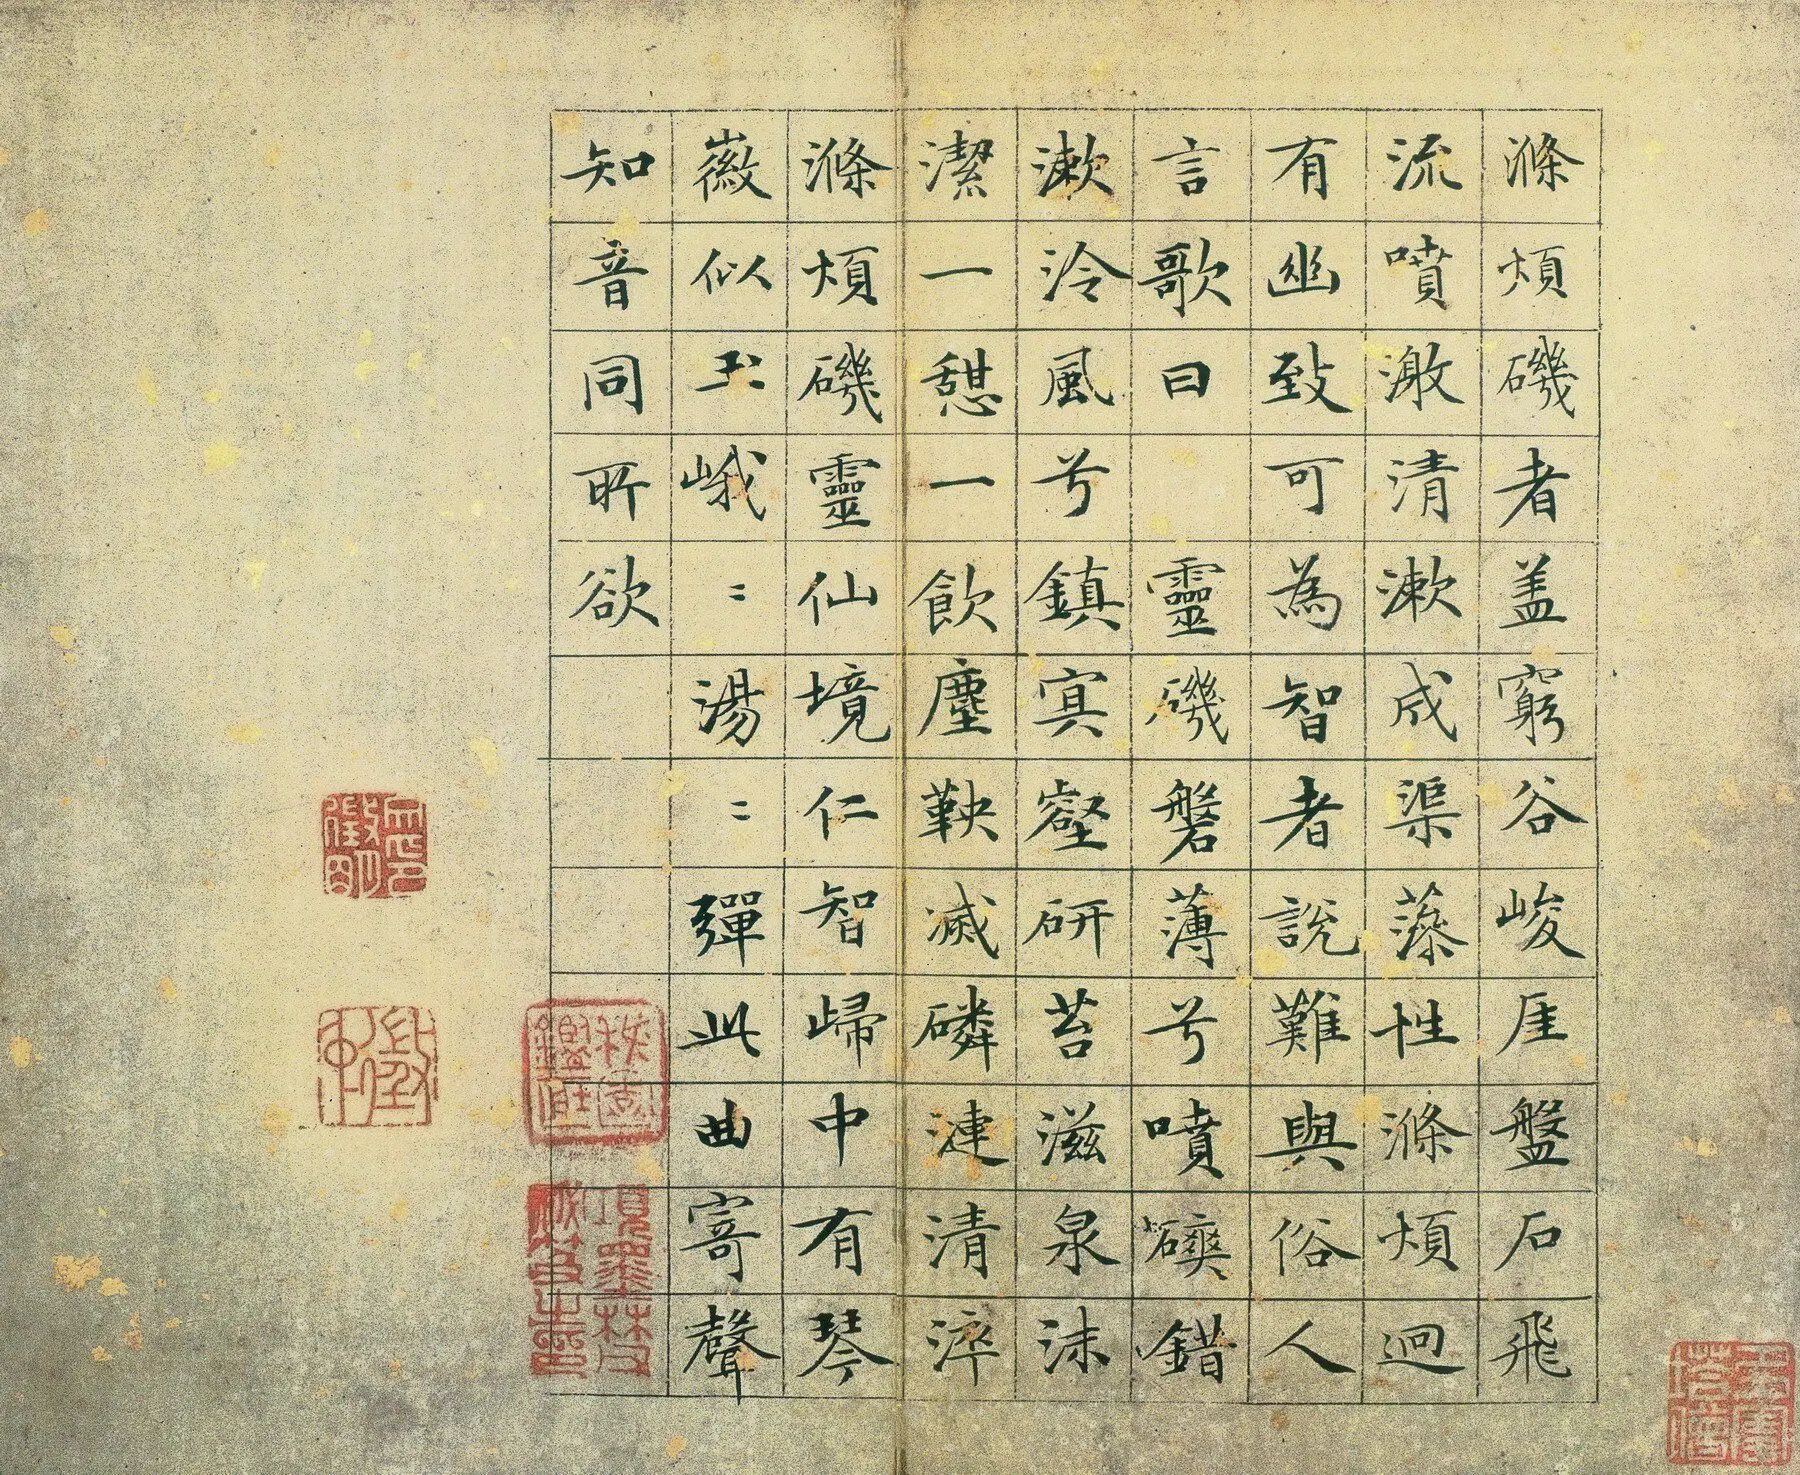 滌煩磯者盖窮谷峻厓盤石飛
流噴激清漱成渠蕅性滌煩迴
有幽致可為智者說難與俗人
言歌曰 靈磯磐薄兮噴礇錯
漱泠風兮鎮寞壑研苔滋泉沫
潔一憩一飲塵鞅滅磷漣清淬
滌煩磯靈仙境仁智歸中有琴
徽似玉峨〻湯〻彈此曲寄聲
知音同所欲
項墨林父
秘笈之印